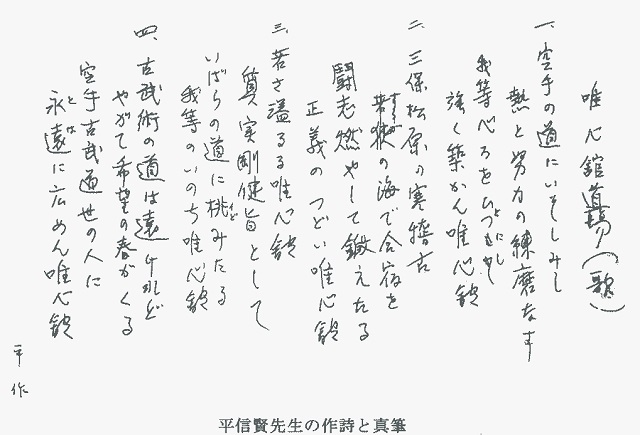 唯心舘道場(歌)
一、空手の道にいそしみし
熱と努力の練磨なす
我等心を
強く築かん唯心舘
二、三保松原の寒稽古
の海で合宿を
闘志燃やして鍛えたる
正義のつどい唯心舘
三、若さ溢るる唯心舘
質実剛健旨として
いばらの道に挑みたる
我等のいのち唯心舘
四、古武術の道は遠けれど
やがて希望の春がくる
空手古武道世の人に
永遠に広めん唯心舘
平作
平信賢先生の作詩と真筆